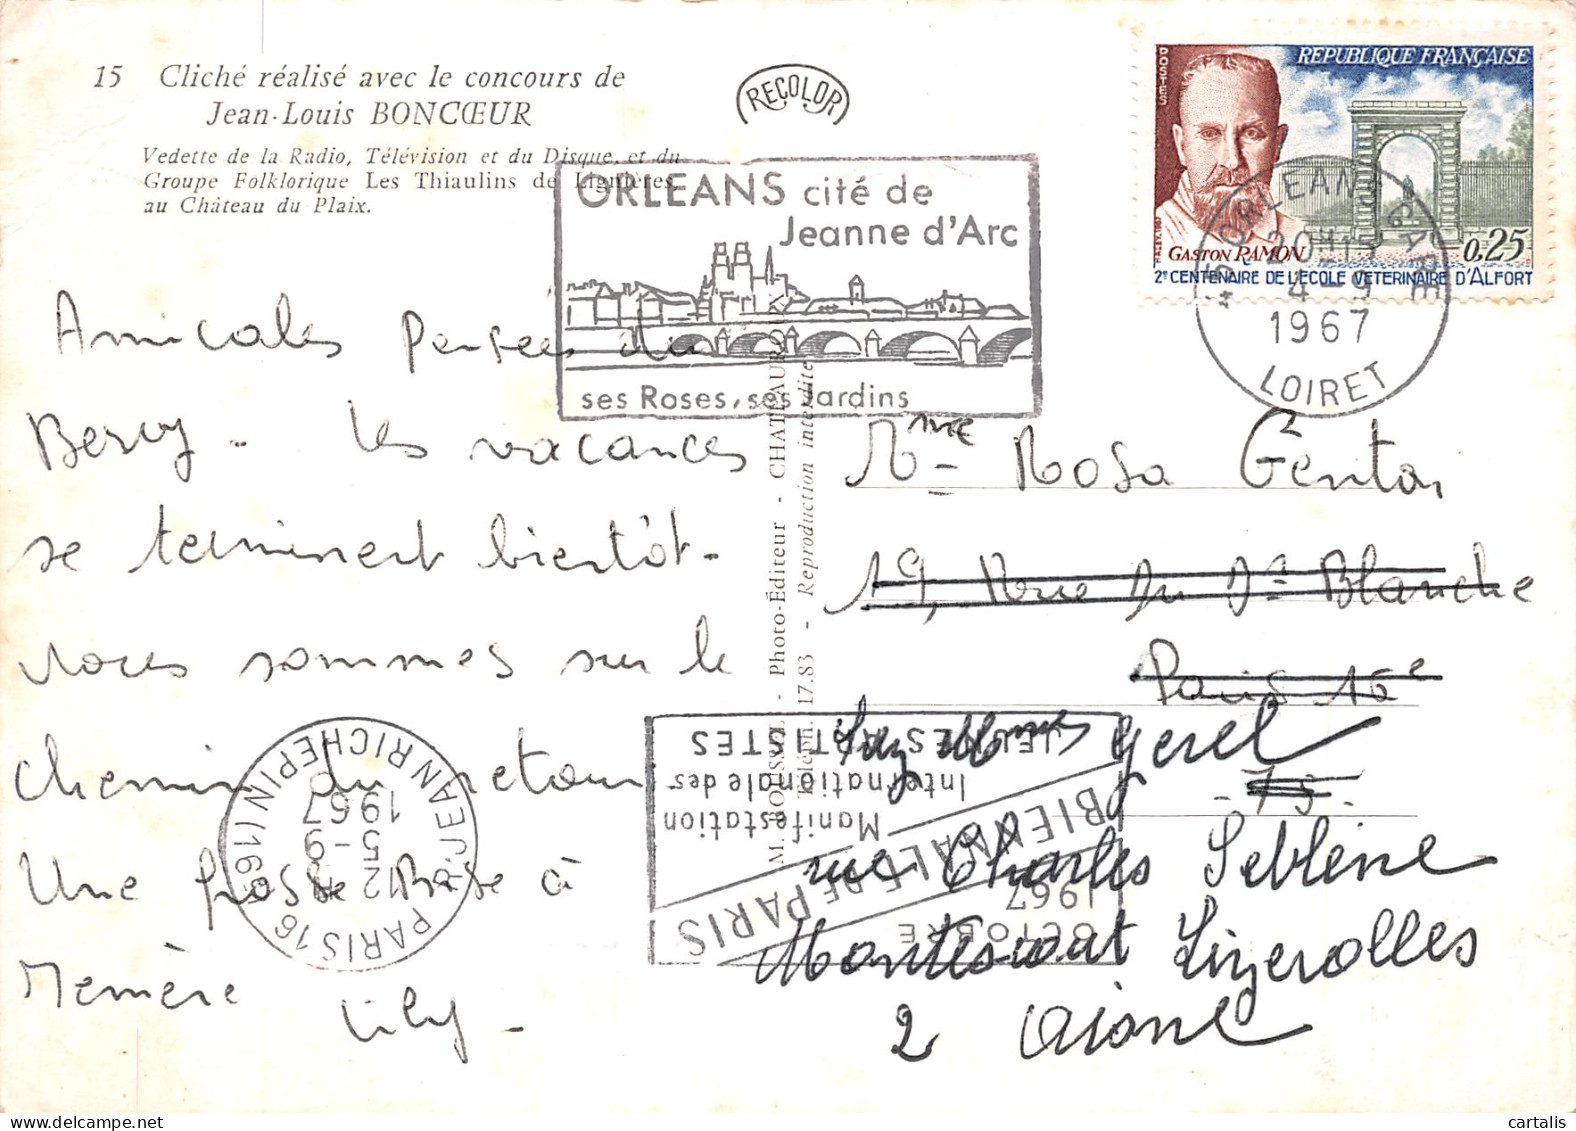 15 Cliché réalisé avec le concours de
Jean-Louis BONCŒUR
Vedette de la Radio, Télévision et du Disque, et du
Groupe Folklorique Les Thiaulins de Lignières
au Château du Plaix.
RECOLOR
POSTES
REPUBLIQUE FRANÇAISE
GASTON RAMON
0,25
2e CENTENAIRE DE L'ECOLE VETERINAIRE D'ALFORT
ORLEANS cité de
Jeanne d'Arc
ses Roses, ses Jardins
ORLEANS GARE
20H15
4-9
1967
LOIRET
Amicales Pensées du
Berry - les vacances
se terminent bientôt -
Nous sommes sur le
chemin du retour
Une grosse Bise à
Mémère Lily -
M. BOUSSEL - Photo-Éditeur - CHATEAUROUX
Téléph. 17.83 - Reproduction interdite
Mme Rosa Genton
19, Rue Du Dr Blanche
Paris 16e
- 75 -
Gerel
rue Charles Seblène
Lizerolles
2 Aisne
PARIS 16 R. JEAN RICHEPIN (16e)
12H
5-9
1967
OCTOBRE
1967
BIENNALE DE PARIS
Manifestation
Internationale des
JEUNES ARTISTES
cartalis